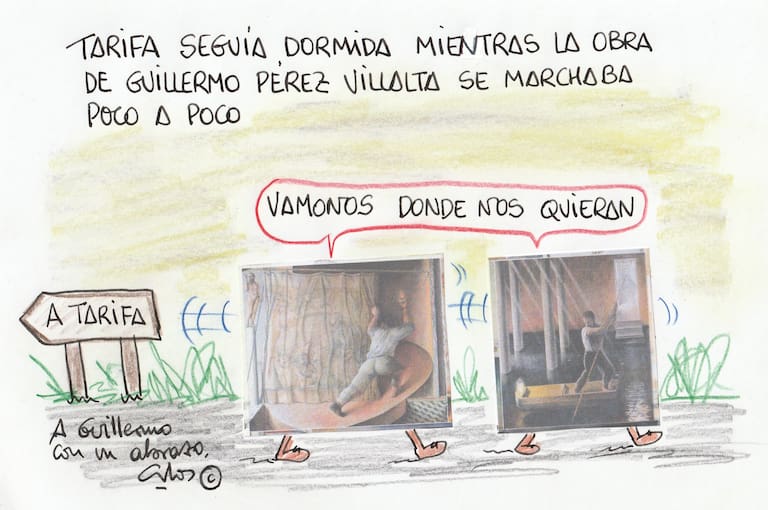 TARIFA SEGUÍA DORMIDA MIENTRAS LA OBRA
DE GUILLERMO PÉREZ VILLALTA SE MARCHABA
POCO A POCO
VAMONOS DONDE NOS QUIERAN
A TARIFA
A Guillermo
con un abrazo.
©